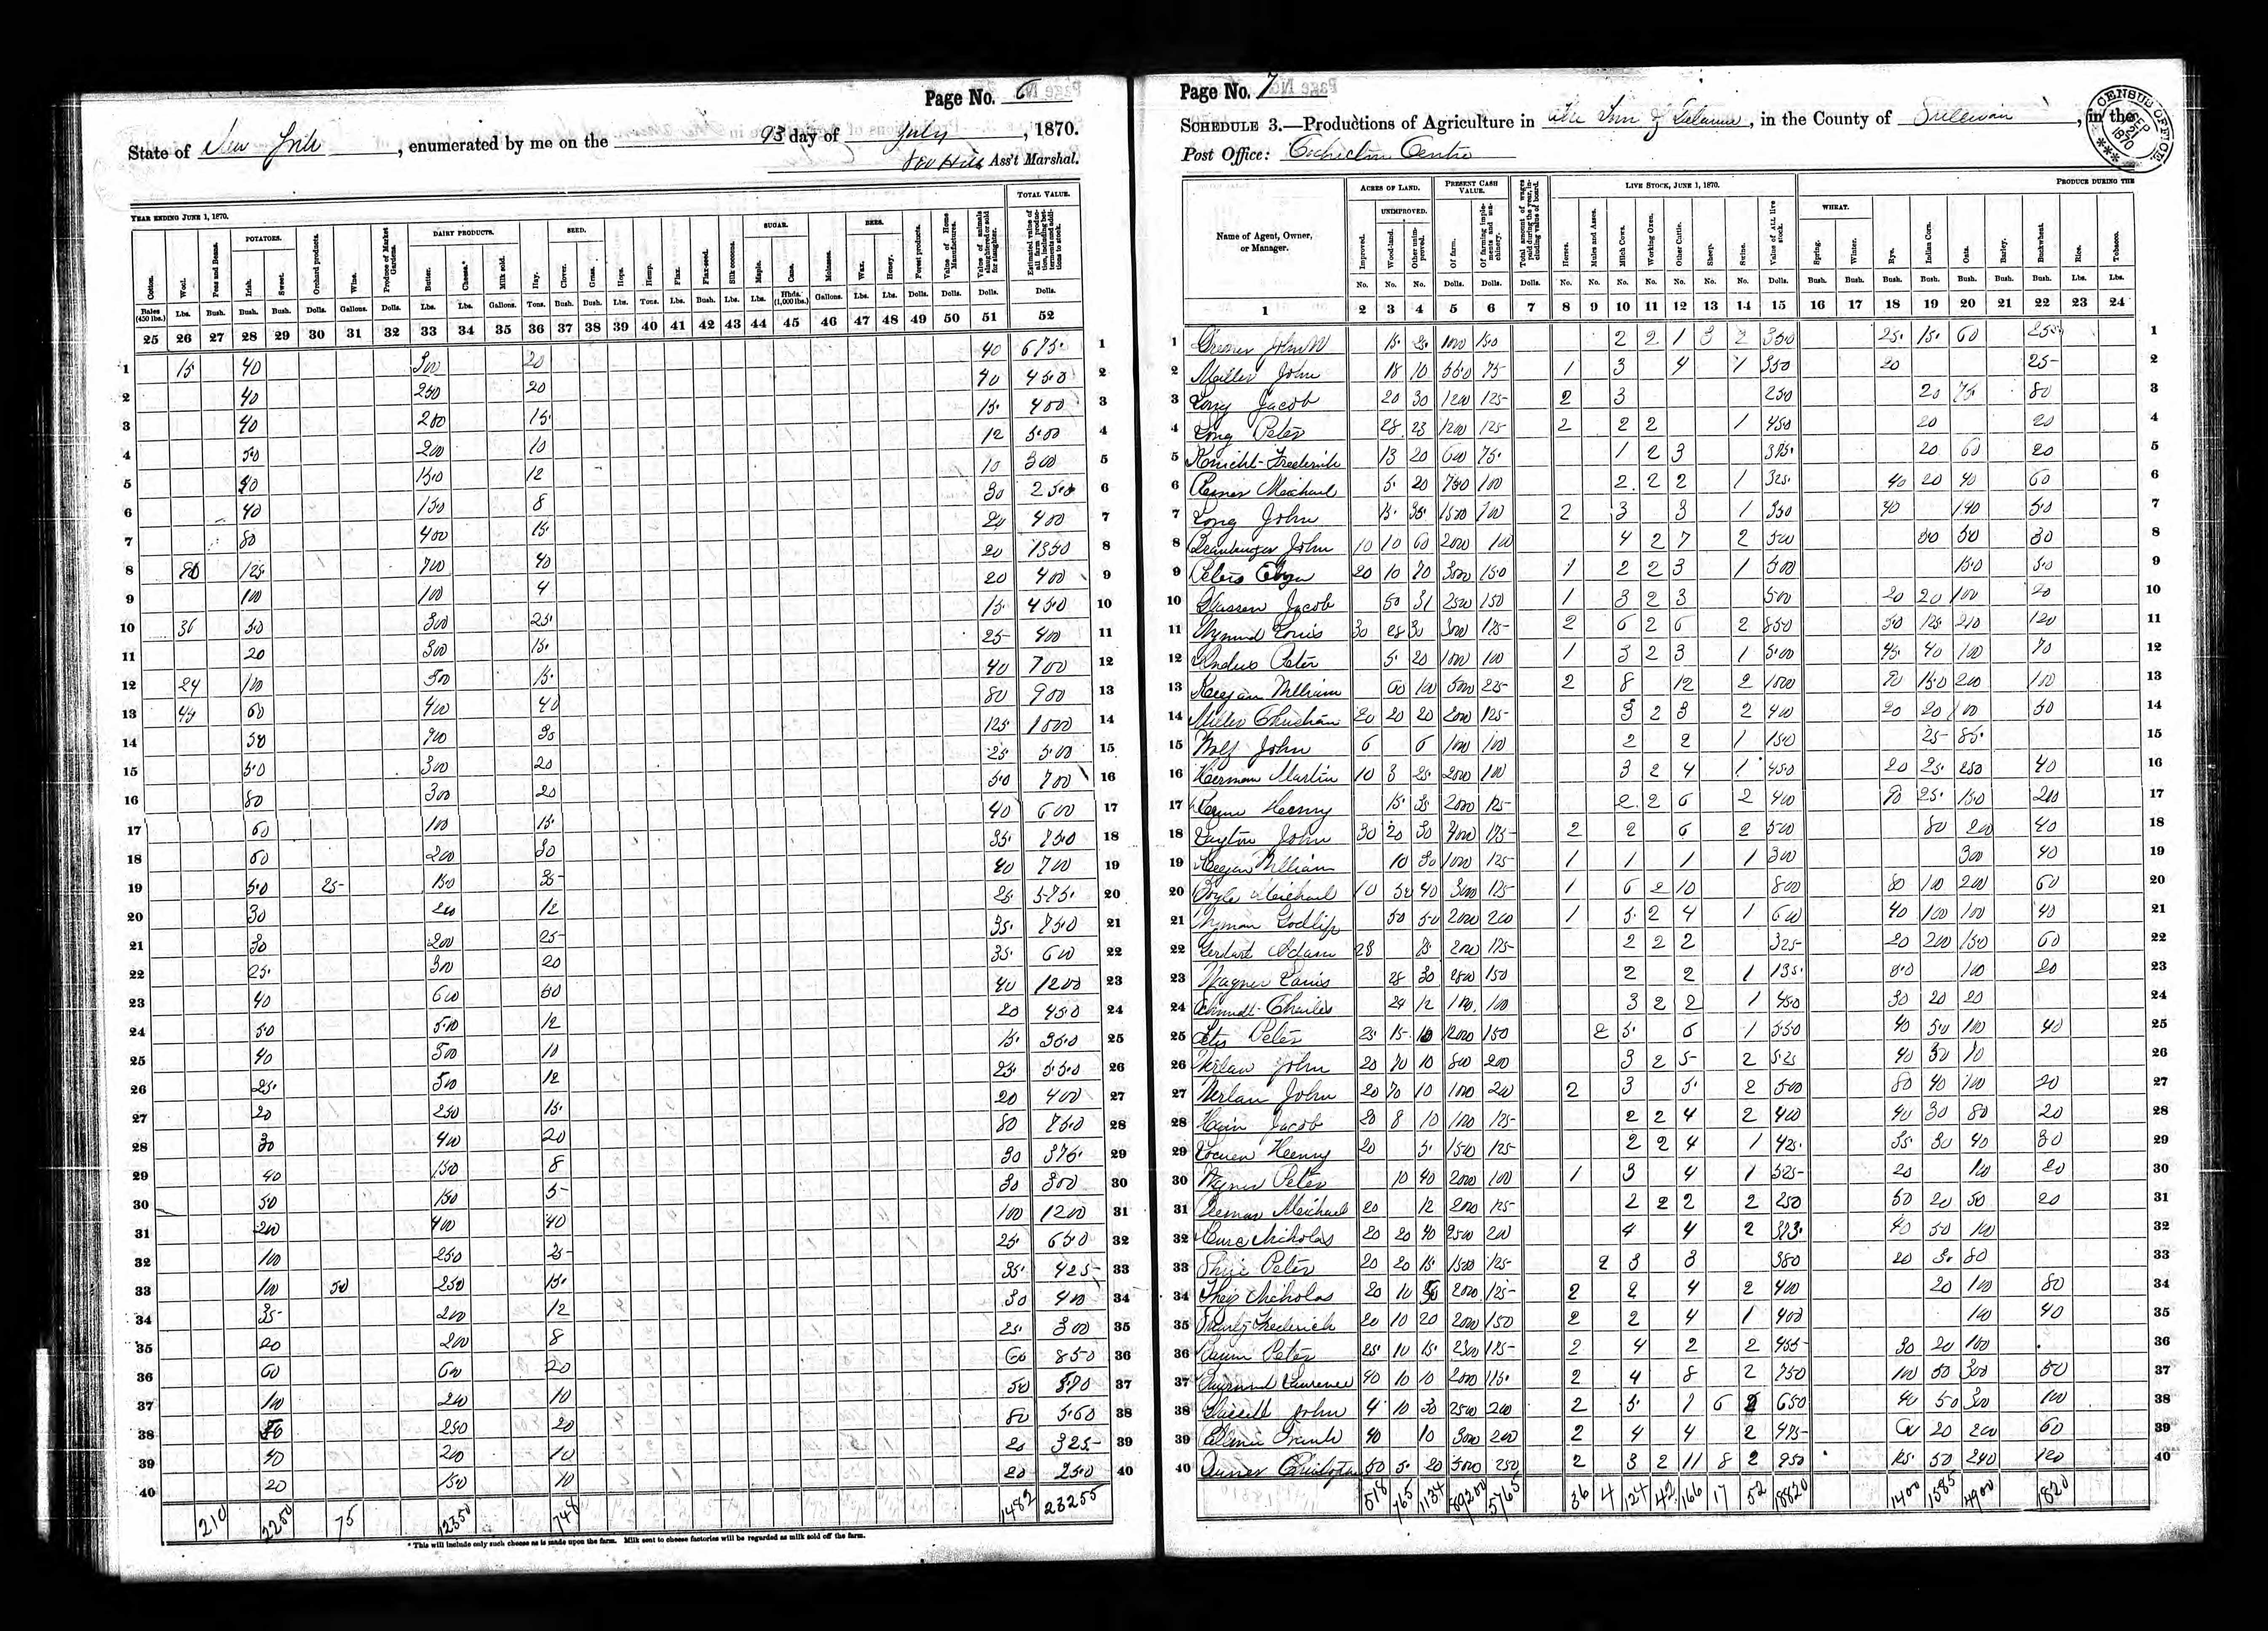 Page No. 6
State of New York, enumerated by me on the 23 day of July, 1870.
Ass't Marshal.
YEAR ENDING JUNE 1, 1870.
TOTAL VALUE.
POTATOES. DAIRY PRODUCTS. SEED. SUGAR. BEES.
Cotton. Wool. Peas and Beans. Irish. Sweet. Orchard products. Wine. Produce of Market Gardens. Butter. Cheese.* Milk sold. Hay. Clover. Grass. Hops. Hemp. Flax. Flax-seed. Silk cocoons. Maple. Cane. Molasses. Wax. Honey. Forest products. Value of Home Manufactures. Value of animals slaughtered or sold for slaughter. Estimated value of all farm production, including betterments and additions to stock.
Bales (450 lbs.) Lbs. Bush. Bush. Bush. Dolls. Gallons. Dolls. Lbs. Lbs. Gallons. Tons. Bush. Bush. Lbs. Tons. Lbs. Bush. Lbs. Lbs. Hhds. (1,000 lbs.) Gallons. Lbs. Lbs. Dolls. Dolls. Dolls. Dolls.
25 26 27 28 29 30 31 32 33 34 35 36 37 38 39 40 41 42 43 44 45 46 47 48 49 50 51 52
1 15 40 300 20 40 675 1
2 40 250 20 40 450 2
3 40 200 15 15 400 3
4 50 200 10 12 500 4
5 40 150 12 10 300 5
6 40 150 8 30 250 6
7 80 400 15 20 400 7
8 80 125 700 40 20 1350 8
9 100 100 4 20 400 9
10 36 50 300 25 15 450 10
11 20 300 15 25 400 11
12 24 100 500 15 40 700 12
13 45 60 400 40 80 900 13
14 50 900 30 125 1000 14
15 50 300 20 25 500 15
16 80 300 20 50 700 16
17 60 100 15 40 600 17
18 60 200 30 35 750 18
19 50 25 150 35 40 700 19
20 30 200 12 25 575 20
21 30 200 25 35 750 21
22 25 300 20 35 600 22
23 40 600 50 40 1200 23
24 50 500 12 20 450 24
25 40 500 10 15 350 25
26 25 500 12 25 550 26
27 20 250 15 20 400 27
28 30 400 20 80 750 28
29 40 150 8 30 375 29
30 50 150 5 30 300 30
31 200 400 40 100 1200 31
32 100 250 25 25 650 32
33 100 50 250 15 35 425 33
34 35 200 12 30 400 34
35 20 200 8 25 300 35
36 60 600 20 60 850 36
37 100 200 10 50 37
38 250 20 80 560 38
39 40 200 10 20 325 39
40 20 150 10 20 250 40
210 2250 75 12350 748 1482 23255
* This will include only such cheese as is made upon the farm. Milk sent to cheese factories will be regarded as milk sold off the farm.
Page No. 7
SCHEDULE 3.—Productions of Agriculture in the Town of Delaware, in the County of Sullivan, in the
Post Office: Cochecton Centre
CENSUS OFFICE SEP 1870
ACRES OF LAND. PRESENT CASH VALUE. LIVE STOCK, JUNE 1, 1870. PRODUCE DURING THE
UNIMPROVED. WHEAT.
Name of Agent, Owner, or Manager. Improved. Wood-land. Other unimproved. Of farm. Of farming implements and machinery. Total amount of wages paid during the year, including value of board. Horses. Mules and Asses. Milch Cows. Working Oxen. Other Cattle. Sheep. Swine. Value of ALL live stock. Spring. Winter. Rye. Indian Corn. Oats. Barley. Buckwheat. Rice. Tobacco.
No. No. No. Dolls. Dolls. Dolls. No. No. No. No. No. No. No. Dolls. Bush. Bush. Bush. Bush. Bush. Bush. Bush. Lbs. Lbs.
1 2 3 4 5 6 7 8 9 10 11 12 13 14 15 16 17 18 19 20 21 22 23 24
1 John W 15 1000 150 2 2 1 3 2 350 25 15 60 25 1
2 Miller John 18 10 550 75 1 3 4 1 350 20 25 2
3 Long Jacob 20 30 1200 125 2 3 250 20 75 80 3
4 Long Peter 28 23 1200 125 2 2 2 1 450 20 20 4
5 Frederick 13 20 600 75 1 2 3 375 20 60 20 5
6 Michael 5 20 750 100 2 2 2 1 325 40 20 40 60 6
7 Long John 15 35 1500 100 2 3 3 1 350 40 140 50 7
8 John 10 10 60 2000 100 4 2 7 2 500 30 50 30 8
9 Peters 20 10 70 3000 150 1 2 2 3 1 500 150 50 9
10 Jacob 50 31 2500 150 1 3 2 3 500 20 20 100 20 10
11 Louis 30 28 30 3000 175 2 6 2 6 2 850 50 125 210 120 11
12 Andus Peter 5 20 1000 100 1 3 2 3 1 500 45 40 100 70 12
13 Keegan William 60 100 5000 225 2 8 12 2 1000 150 200 100 13
14 Miller Christian 20 20 20 2000 125 3 2 3 2 400 20 20 100 50 14
15 Wolf John 6 6 1000 100 2 2 1 150 25 85 15
16 Herman Martin 10 3 25 2000 100 3 2 4 1 450 20 25 250 40 16
17 Henry 15 35 2000 125 2 2 6 2 400 25 150 200 17
18 Layton John 30 20 30 4000 175 2 2 6 2 500 80 200 40 18
19 Keegan William 10 30 1000 125 1 1 1 1 300 300 40 19
20 Boyle Michael 10 50 40 3000 125 1 6 2 10 800 80 100 200 60 20
21 50 50 2000 200 1 5 2 4 1 600 40 100 100 40 21
22 Gerhart Adam 28 8 2000 125 2 2 2 325 20 200 150 60 22
23 Wagner Louis 28 30 2800 150 2 2 1 135 100 20 23
24 Schmidt Charles 24 12 1000 100 3 2 2 1 450 30 20 20 24
25 Peter 25 15 10 2000 150 2 5 6 1 550 40 50 100 40 25
26 John 20 70 10 800 200 3 2 5 2 525 40 30 26
27 John 20 70 10 1000 200 2 3 5 2 500 80 40 100 20 27
28 Hein Jacob 20 8 10 1000 125 2 2 4 2 400 40 30 80 20 28
29 Henry 20 5 1500 125 2 2 4 1 425 35 30 40 30 29
30 Peter 10 40 2000 100 1 3 4 1 325 20 100 20 30
31 Michael 20 12 2000 125 2 2 2 2 250 50 20 50 20 31
32 Nicholas 20 20 40 2500 200 4 4 2 323 40 50 100 32
33 Peter 20 20 15 1500 125 2 3 3 380 20 80 33
34 Theis Nicholas 20 10 2000 125 2 2 4 2 400 20 100 80 34
35 Frederick 20 10 20 2000 150 2 2 4 1 400 100 40 35
36 Peter 25 10 15 2300 125 2 4 2 2 455 30 20 100 36
37 Laurence 40 10 10 2000 115 2 4 8 2 750 100 50 300 50 37
38 John 4 10 30 2500 200 2 5 6 650 40 50 300 100 38
39 Frank 40 10 3000 200 2 4 4 2 475 60 20 200 60 39
40 50 5 20 3000 250 2 3 2 11 8 2 950 125 50 240 120 40
518 765 1134 89200 5765 36 4 124 42 166 17 52 18820 1400 1585 4900 1820